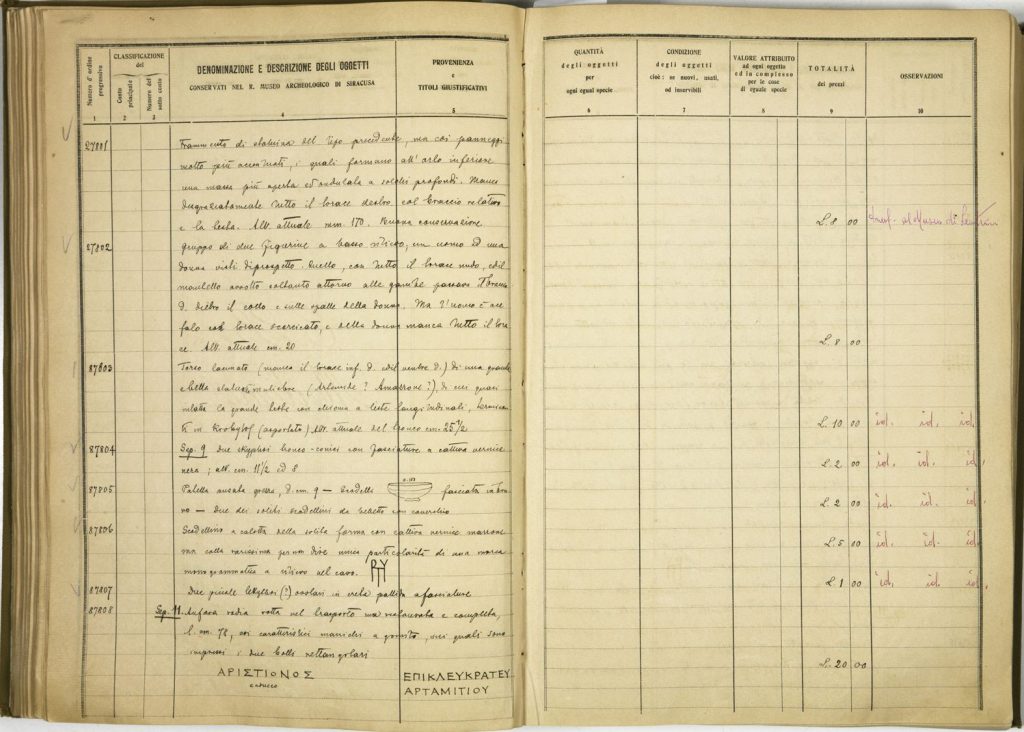 Numero d'ordine progressivo
CLASSIFICAZIONE del
Conto principale
Numero del sotto conto
DENOMINAZIONE E DESCRIZIONE DEGLI OGGETTI
CONSERVATI NEL R. MUSEO ARCHEOLOGICO DI SIRACUSA
PROVENIENZA e TITOLI GIUSTIFICATIVI
QUANTITÀ degli oggetti per ogni egual specie
CONDIZIONE degli oggetti cioè: se nuovi, usati, od inservibili
VALORE ATTRIBUITO ad ogni oggetto ed in complesso per le cose di eguale specie
TOTALITÀ dei prezzi
OSSERVAZIONI
1 2 3 4 5 6 7 8 9 10
27801 Frammento di statuina del tipo precedente, ma coi panneggi
molto più accentuati, i quali formano all'orlo inferiore
una massa più aperta ed ondulata a solchi profondi. Manca
disgraziatamente tutto il torace destro col braccio relativo
e la testa. Alt. attuale mm. 170. Buona conservazione. L. 8 00 al Museo di Lentini
27802 gruppo di due figurine a basso rilievo, un uomo ed una
donna visti di prospetto. Quello, con tutto il torace nudo, ed il
mantello avvolto soltanto attorno alle gambe passava il braccio
d. dietro il collo e sulle spalle della donna. Ma l'uomo è ace
falo col torace scorticato, e della donna manca tutto il tora
ce. Alt. attuale cm. 20 L. 8 00
87803 Torso (manca il torace inf. d. ed il ventre d.) di una grande
e bella muliebre (Artemide? Amazzone?), di cui quasi
la grande veste con a liste longitudinali,
in Krobylos (asportato) Alt. attuale del tronco cm. 25 1/2 L. 10 00 id. id. id.
87804 Sep. 9 due skyphoi tronco-conici con fasciature a cattiva vernice
nera; alt. cm. 11 1/2 ed 8 L. 2 00 id. id. id.
87805 Patella ansata grezza, d. cm. 9 — fasciata in bru
no — due dei soliti scodellini da con coverchio L. 2 00 id. id. id.
87806 Scodellino a calotta della solita forma con cattiva vernice marrone
ma colla rarissima per non dire unica particolarità di una marca
monogrammatica a rilievo nel cavo. L. 5 00 id. id. id.
87807 Due piccole lekythoi (?) ovolari in creta pallida a fasciature L. 1 00 id. id. id.
87808 Sep. 11. Anfora rodia rotta nel trasporto ma restaurata e completa,
l. cm. 78, coi caratteristici manichi a gomito, nei quali sono
impressi i due bolli rettangolari L. 20 00
ΑΡΙΣΤΙΩΝΟΣ
caduceo
ΕΠΙΚΛΕΥΚΡΑΤΕΥ
ΑΡΤΑΜΙΤΙΟΥ